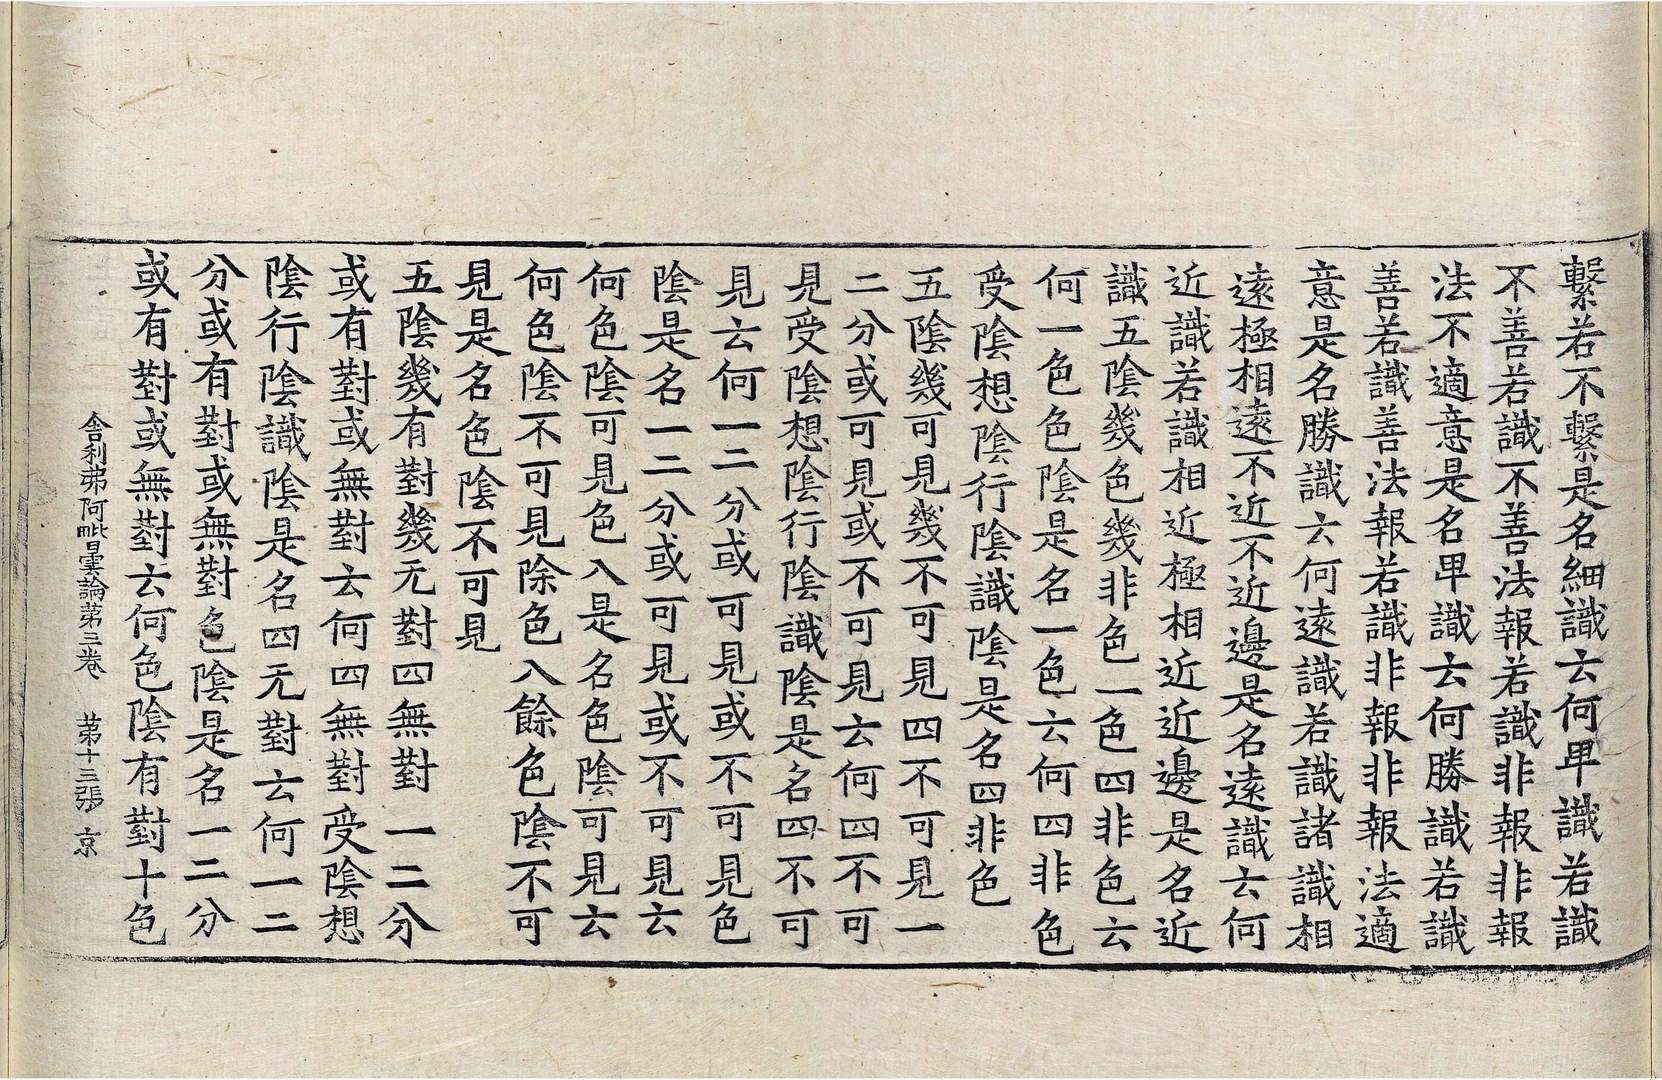 繫若不繫是名細識云何卑識若識
不善若識不善法報若識非報非報
法不適意是名卑識云何勝識若識
善若識善法報若識非報非報法適
意是名勝識云何遠識若識諸識相
遠極相遠不近不近邊是名遠識云何
近識若識相近極相近近邊是名近
識五陰幾色幾非色一色四非色云
何一色色陰是名一色云何四非色
受陰想陰行陰識陰是名四非色
五陰幾可見幾不可見四不可見一
二分或可見或不可見云何四不可
見受陰想陰行陰識陰是名四不可
見云何一二分或可見或不可見色
陰是名一二分或可見或不可見云
何色陰可見色入是名色陰可見云
何色陰不可見除色入餘色陰不可
見是名色陰不可見
五陰幾有對幾无對四無對一二分
或有對或無對云何四無對受陰想
陰行陰識陰是名四无對云何一二
分或有對或無對色陰是名一二分
或有對或無對云何色陰有對十色
舍利弗阿毗曇論第三卷 第十三張 京